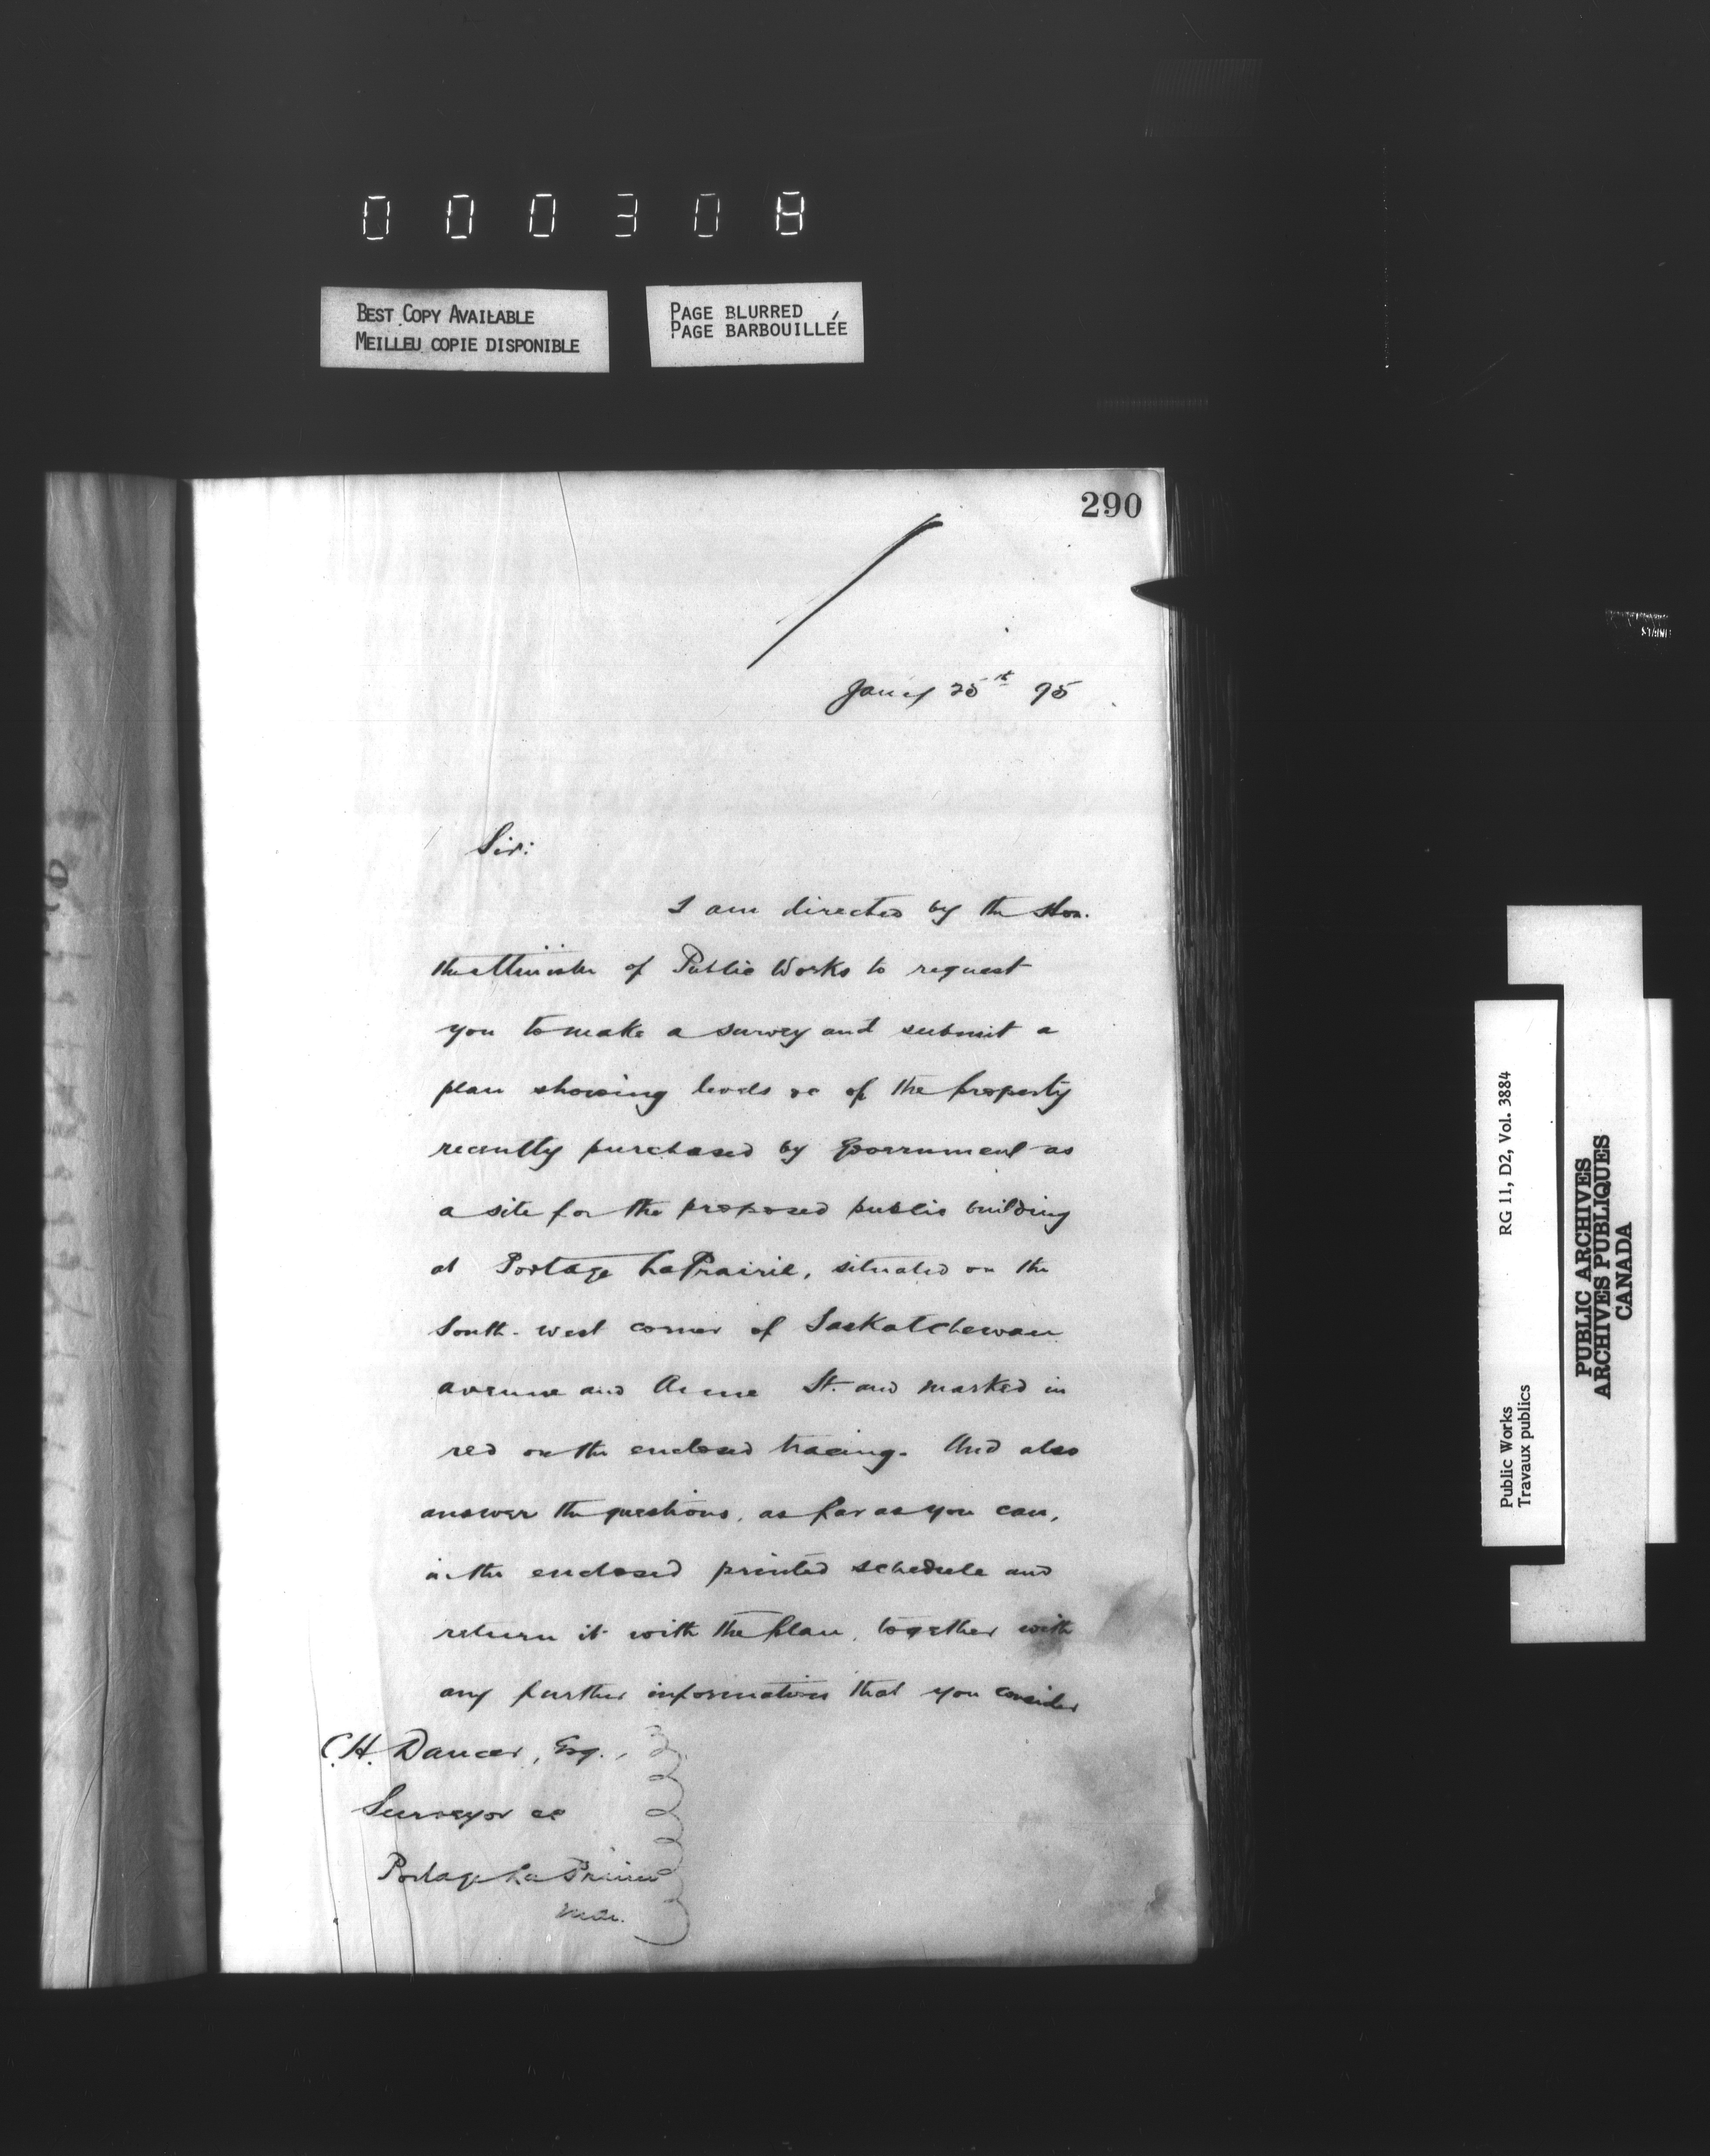 000308
BEST COPY AVAILABLE
MEILLEU COPIE DISPONIBLE
PAGE BLURRED
PAGE BARBOUILLÉE
290
Jany 25th 95
Sir:
I am directed by the Hon.
the Minister of Public Works to request
you to make a survey and submit a
plan showing levels &c of the property
recently purchased by Government as
a site for the proposed public building
at Portage La Prairie, situated on the
South-west corner of Saskatchewan
avenue and Anne St. and marked in
red on the enclosed tracing. And also
answer the questions, as far as you can,
in the enclosed printed schedule and
return it with the plan, together with
any further information that you consider
C.H. Dancer, Esq.,
Surveyor &c
Portage La Prairie
Man.
Public Works
Travaux publics
RG 11, D2, Vol. 3884
PUBLIC ARCHIVES
ARCHIVES PUBLIQUES
CANADA